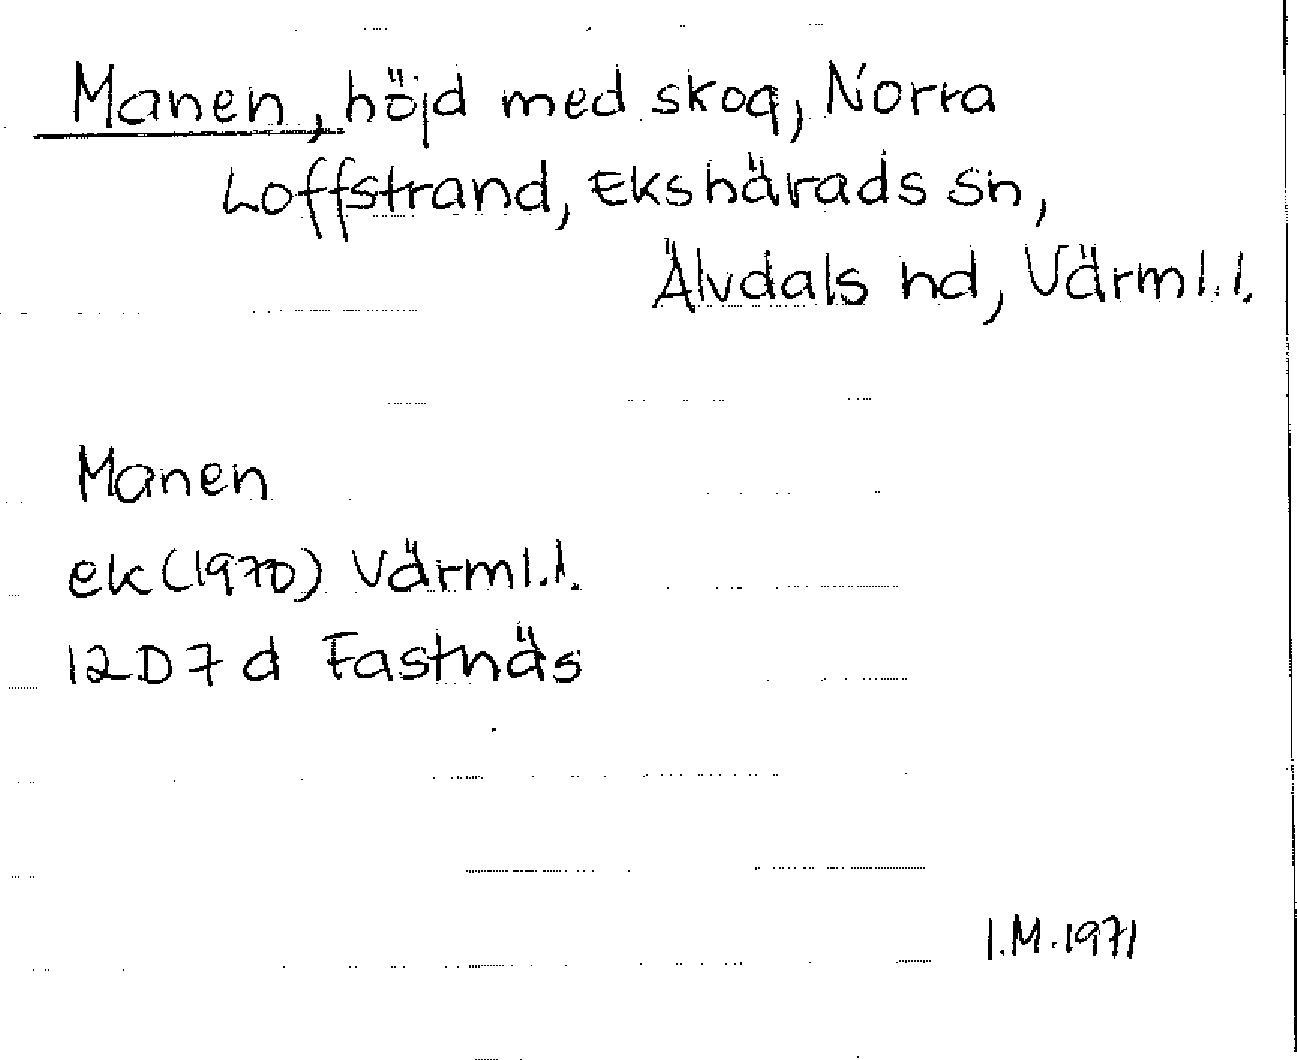 Manen, höjd med skog, Norra
Loffstrand, Ekshärads sn,
Älvdals hd, Värml.l.
Manen
ek(1970) Värml.l.
12D7d Fastnäs
I.M.1971